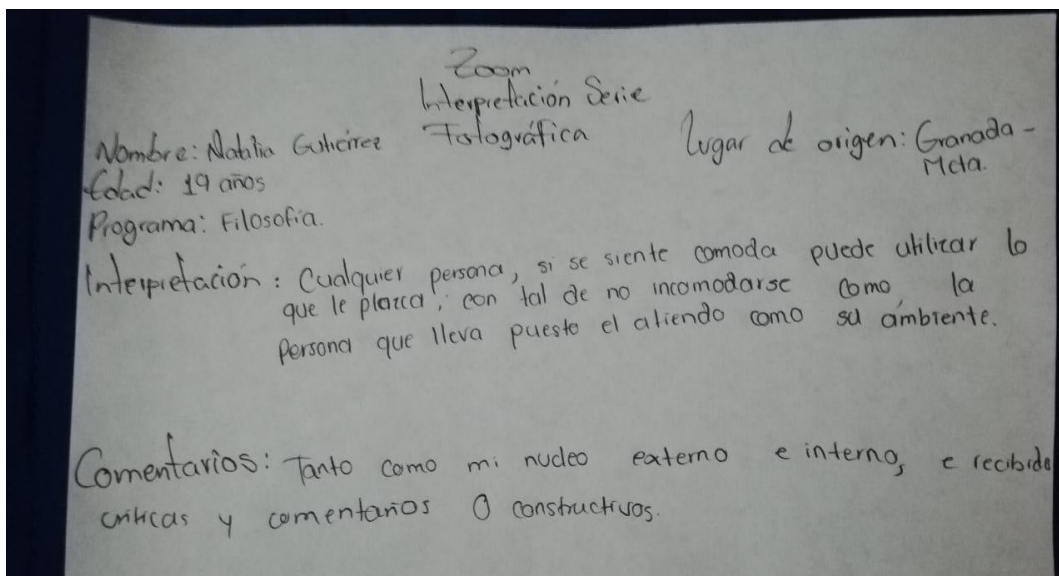 Zoom
Interpretación Serie
Fotográfica
Lugar de origen: Granada -
Meta.
Nombre: Natalia Gutiérrez
Edad: 19 años
Programa: Filosofía.
Interpretación: Cualquier persona, si se siente comoda puede utilizar lo
que le plazca, con tal de no incomodarse como la
Persona que lleva puesto el atiendo como su ambiente.
Comentarios: Tanto como mi nucleo externo e interno, e recibido
criticas y comentarios 0 constructivos.